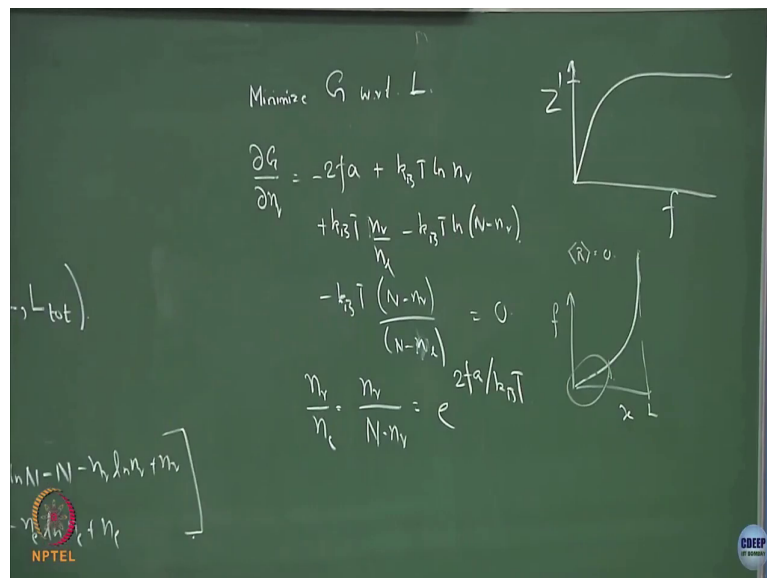 Minimize G w.r.t. L.
∂G/∂n_r = -2fa + k_B T ln n_r
+ k_B T n_r/n_r - k_B T ln (N-n_r)
- k_B T (N-n_r)/(N-n_r) = 0
n_r/n_l = n_r/(N-n_r) = e^{2fa/k_B T}
, L_tot)
ln N - N - n_r ln n_r + n_r
- n_l ln n_l + n_l ]
z
1
f
⟨R⟩=0
f
x L
NPTEL
CDEEP
IIT BOMBAY